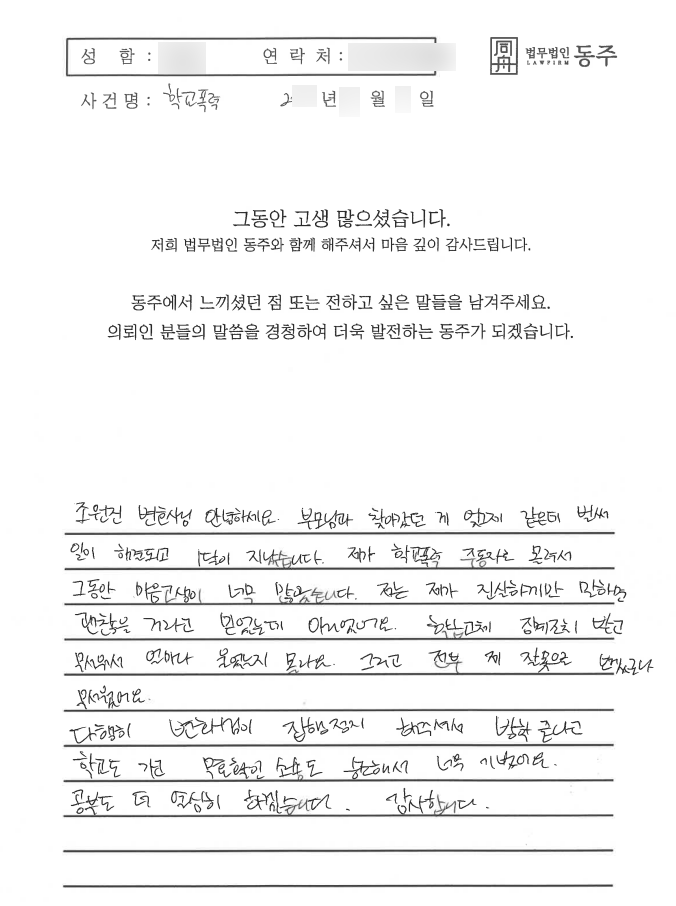 성 함 : 연 락 처 :
同舟 법무법인 동주
LAWFIRM
사 건 명 : 학교폭력 2 년 월 일
그동안 고생 많으셨습니다.
저희 법무법인 동주와 함께 해주셔서 마음 깊이 감사드립니다.
동주에서 느끼셨던 점 또는 전하고 싶은 말들을 남겨주세요.
의뢰인 분들의 말씀을 경청하여 더욱 발전하는 동주가 되겠습니다.
조원진 변호사님 안녕하세요. 부모님과 찾아갔던 게 엊그제 같은데 벌써
일이 해결되고 1달이 지났습니다. 제가 학교폭력 주동자로 몰려서
그동안 마음고생이 너무 많았습니다. 저는 제가 진실하게만 말하면
괜찮을 거라고 믿었는데 아니었어요. 학급교체 징계조치 받고
무서워서 얼마나 울었는지 몰라요. 그리고 전부 제 잘못으로
무서웠어요.
다행히 변호사님이 집행정지 해주셔서 방학 끝나고
학교도 가고 소송도 승소해서 너무 기뻤어요.
공부도 더 열심히 하겠습니다. 감사합니다.